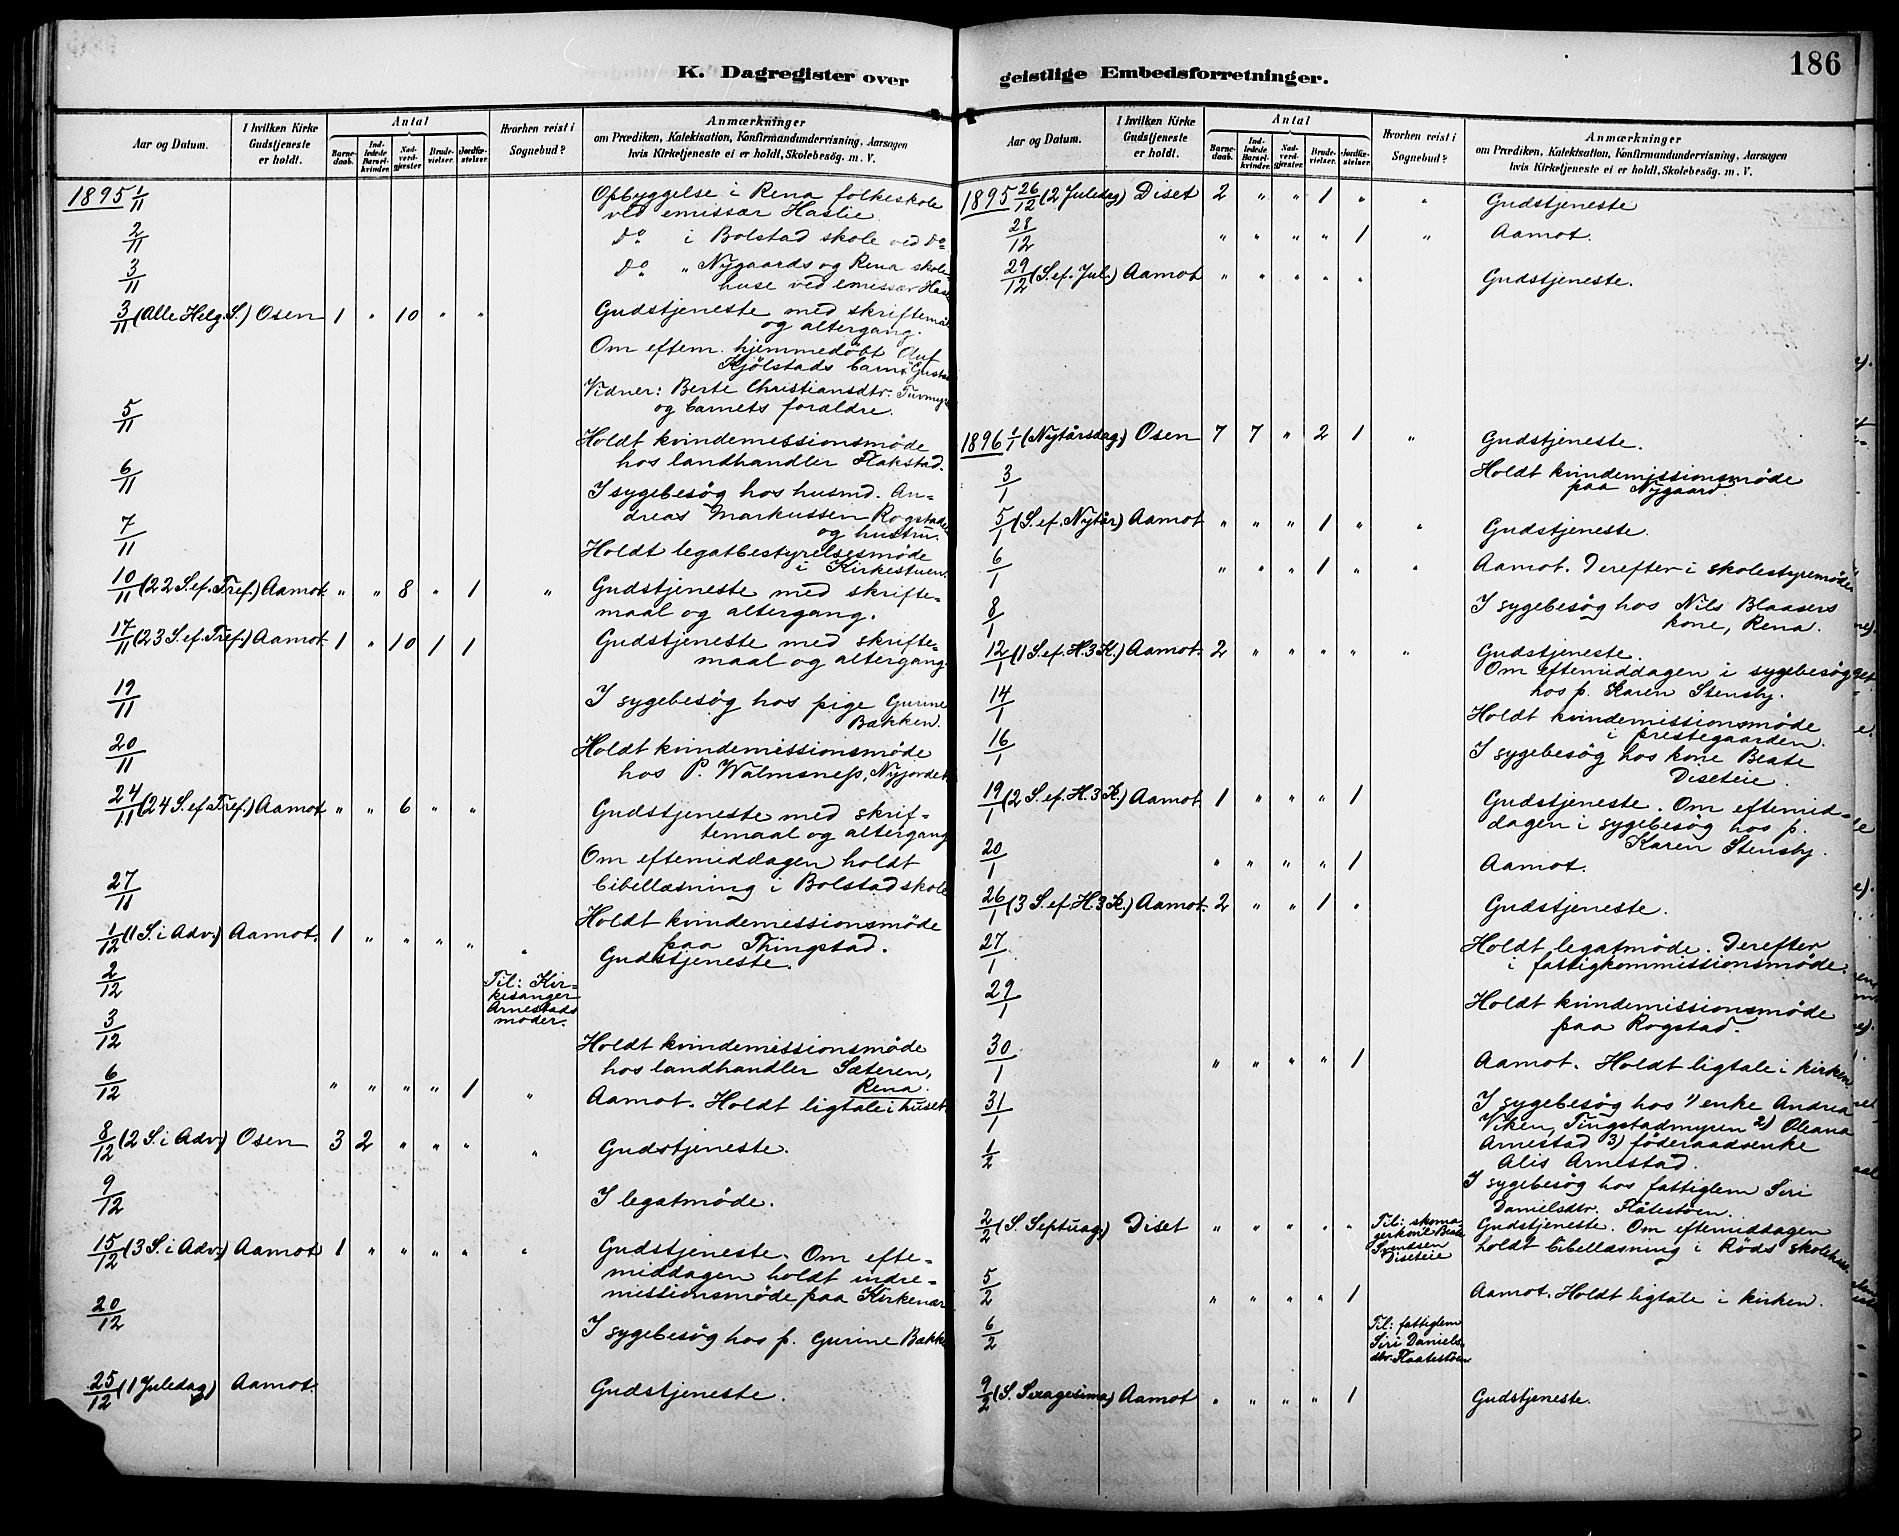 K. Dagregister over
Aar og Datum.
I hvilken Kirke Gudstjeneste er holdt.
Antal
Barne-daab.
Ind-ledede Barsel-kvinder.
Nad-verd-gjæster.
Brude-vielser.
Jordfæ-stelser.
Hvorhen reist i Sognebud?
Anmærkninger
om Prædiken, Katekisation, Konfirmandundervisning, Aarsagen
hvis Kirketjeneste ei er holdt, Skolebesøg. m. V.
1895 1/11 Opbyggelse i Rena folkeskole
ved emissær Haslie.
2/11 Do i Bolstad skole ved Do
3/11 Do " Nygaards og Rena skole-
huse ved emissær Hasl
3/11 (Alle Helg. S.) Osen 1 " 10 " " Gudstjeneste med skriftemaal
og altergang.
Om eftem. hjemmedöbt Oluf
Kjölstads barn: Gustav
Vidner: Berte Christiansdtr. Furmyr
og barnets forældre.
5/11 Holdt kvindemissionsmöde
hos landhandler Flakstad.
6/11 I sygebesög hos husmd. An-
dreas Markussen Rogstad
og hustru.
7/11 Holdt legatbestyrelsesmöde
i Kirkestuen.
10/11 (22 S. ef. Tref.) Aamot " " 8 " 1 " Gudstjeneste med skrifte-
maal og altergang.
17/11 (23 S. ef. Tref.) Aamot. 1 " 10 1 1 Gudstjeneste med skrifte-
maal og altergang.
19/11 I sygebesög hos pige Gurine
Bækken.
20/11 Holdt kvindemissionsmöde
hos P. Walmsness, Nyjordet
24/11 (24 S. ef. Tref.) Aamot " " 6 " " Gudstjeneste med skrif-
temaal og altergang
Om eftemiddagen holdt
bibellæsning i Bolstad skole
27/11 Holdt kvindemissionsmöde
paa Thingstad.
1/12 (1 S. i Adv.) Aamot. 1 " " " " " Gudstjeneste.
2/12 Til: Kir-
kesanger
Arnestads
moder.
3/12 Holdt kvindemissionsmöde
hos landhandler Sæteren,
Rena.
6/12 " " " " 1 " Aamot. Holdt ligtale i huset.
8/12 (2 S. i Adv.) Osen 3 2 " " " " Gudstjeneste.
9/12 I legatmöde.
15/12 (3 S. i Adv.) Aamot 1 " " " " " Gudstjeneste. Om efte-
middagen holdt indre-
missionsmöde paa Kirkenær
20/12 I sygebesög hos p. Gurine Bække
25/12 (1 Juledag) Aamot. Gudstjeneste.
geistlige Embedsforretninger.
186
Aar og Datum.
I hvilken Kirke Gudstjeneste er holdt.
Antal
Barne-daab.
Ind-ledede Barsel-kvinder.
Nad-verd-gjæster.
Brude-vielser.
Jordfæ-stelser.
Hvorhen reist i Sognebud?
Anmærkninger
om Prædiken, Katekisation, Konfirmandundervisning, Aarsagen
hvis Kirketjeneste ei er holdt, Skolebesøg. m. V.
1895 26/12 (2 Juledag) Diset 2 " " 1 " " Gudstjeneste
28/12 " " " " 1 " Aamot.
29/12 (S. ef. Jul.) Aamot " " " " " Gudstjeneste.
1896 1/1 (Nytårsdag) Osen 7 7 " 2 1 " Gudstjeneste.
3/1 Holdt kvindemissionsmöde
paa Nygaard.
5/1 (S. ef. Nytår) Aamot " " " 1 " " Gudstjeneste.
6/1 " " " 1 " " Aamot. Derefter i skolestyremöde
8/1 I sygebesög hos Nils Blaasers
kone, Rena.
12/1 (1 S. ef. H. 3 K.) Aamot. 2 " " " " " Gudstjeneste.
Om eftemiddagen i sygebesög
hos p. Karen Stensby.
14/1 Holdt kvindemissionsmöde
i prestegaarden.
16/1 I sygebesög hos kone Beate
Diseteie.
19/1 (2 S. ef. H. 3 K.) Aamot 1 " " " 1 Gudstjeneste. Om eftemid-
dagen i sygebesög hos p.
Karen Stensby.
20/1 " " " " 1 Aamot.
26/1 (3 S. ef. H. 3 K.) Aamot. 2 " " 1 " Gudstjeneste.
27/1 Holdt legatmöde. Derefter
i fattigkommissionsmöde.
29/1 Holdt kvindemissionsmöde
paa Rogstad.
30/1 " " " " 1 Aamot. Holdt ligtale i kirken
31/1 I sygebesög hos 1) enke Andrea
Viken, Tingstadmyren 2) Oleana
Arnestad 3) föderaadsenke
Alis Arnestad.
1/2 I sygebesög hos fattiglem Siri
Danielsdtr. Flåtestöen.
2/2 (S. Septuag.) Diset " " " " " Til: skoma-
gerkone Beate
Svendsen
Diseteie
Gudstjeneste. Om eftemiddagen
holdt bibellæsning i Röds skolehus.
5/2 " " " " 1 Aamot. Holdt ligtale i kirken.
6/2 Til: fattiglem
Siri Daniels-
dtr. Flaatestöen
9/2 (S. Sexagesima) Aamot " " " " 1 Gudstjeneste.